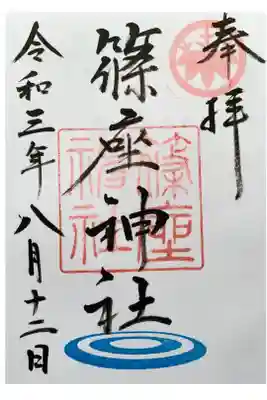 奉拝
篠座神社
篠座神社
令和三年八月十二日